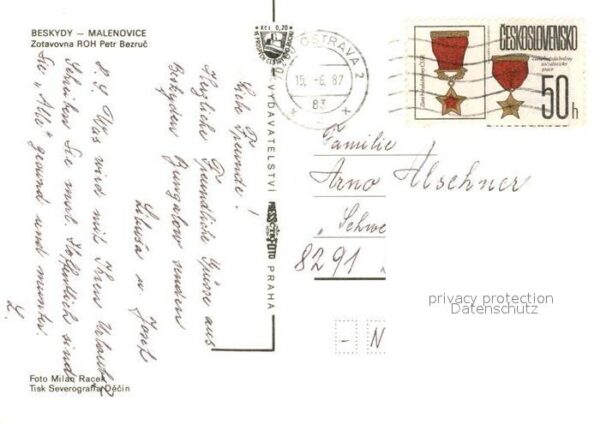 BESKYDY — MALENOVICE
Zotavovna ROH Petr Bezruč
Liebe Freunde!
Herzliche Freundliche Grüsse aus
Beskyden Bungalow senden
Libuša u Josef
P.S. Was wird mit Ihren Urlaub?
Schreiben Sie mal. Hoffentlich sind
Sie "Alle" gesund und munter.
L.
Foto Milan Racek
Tisk Severografia Děčín
VYDAVATELSTVÍ
PRESSFOTO
PRAHA
KčS 0,20
OSTRAVA 2
15.-6.87
83
ČESKOSLOVENSKO
50h
Familie
Arno Alschner
"Schwe
8291
- N
privacy protection
Datenschutz